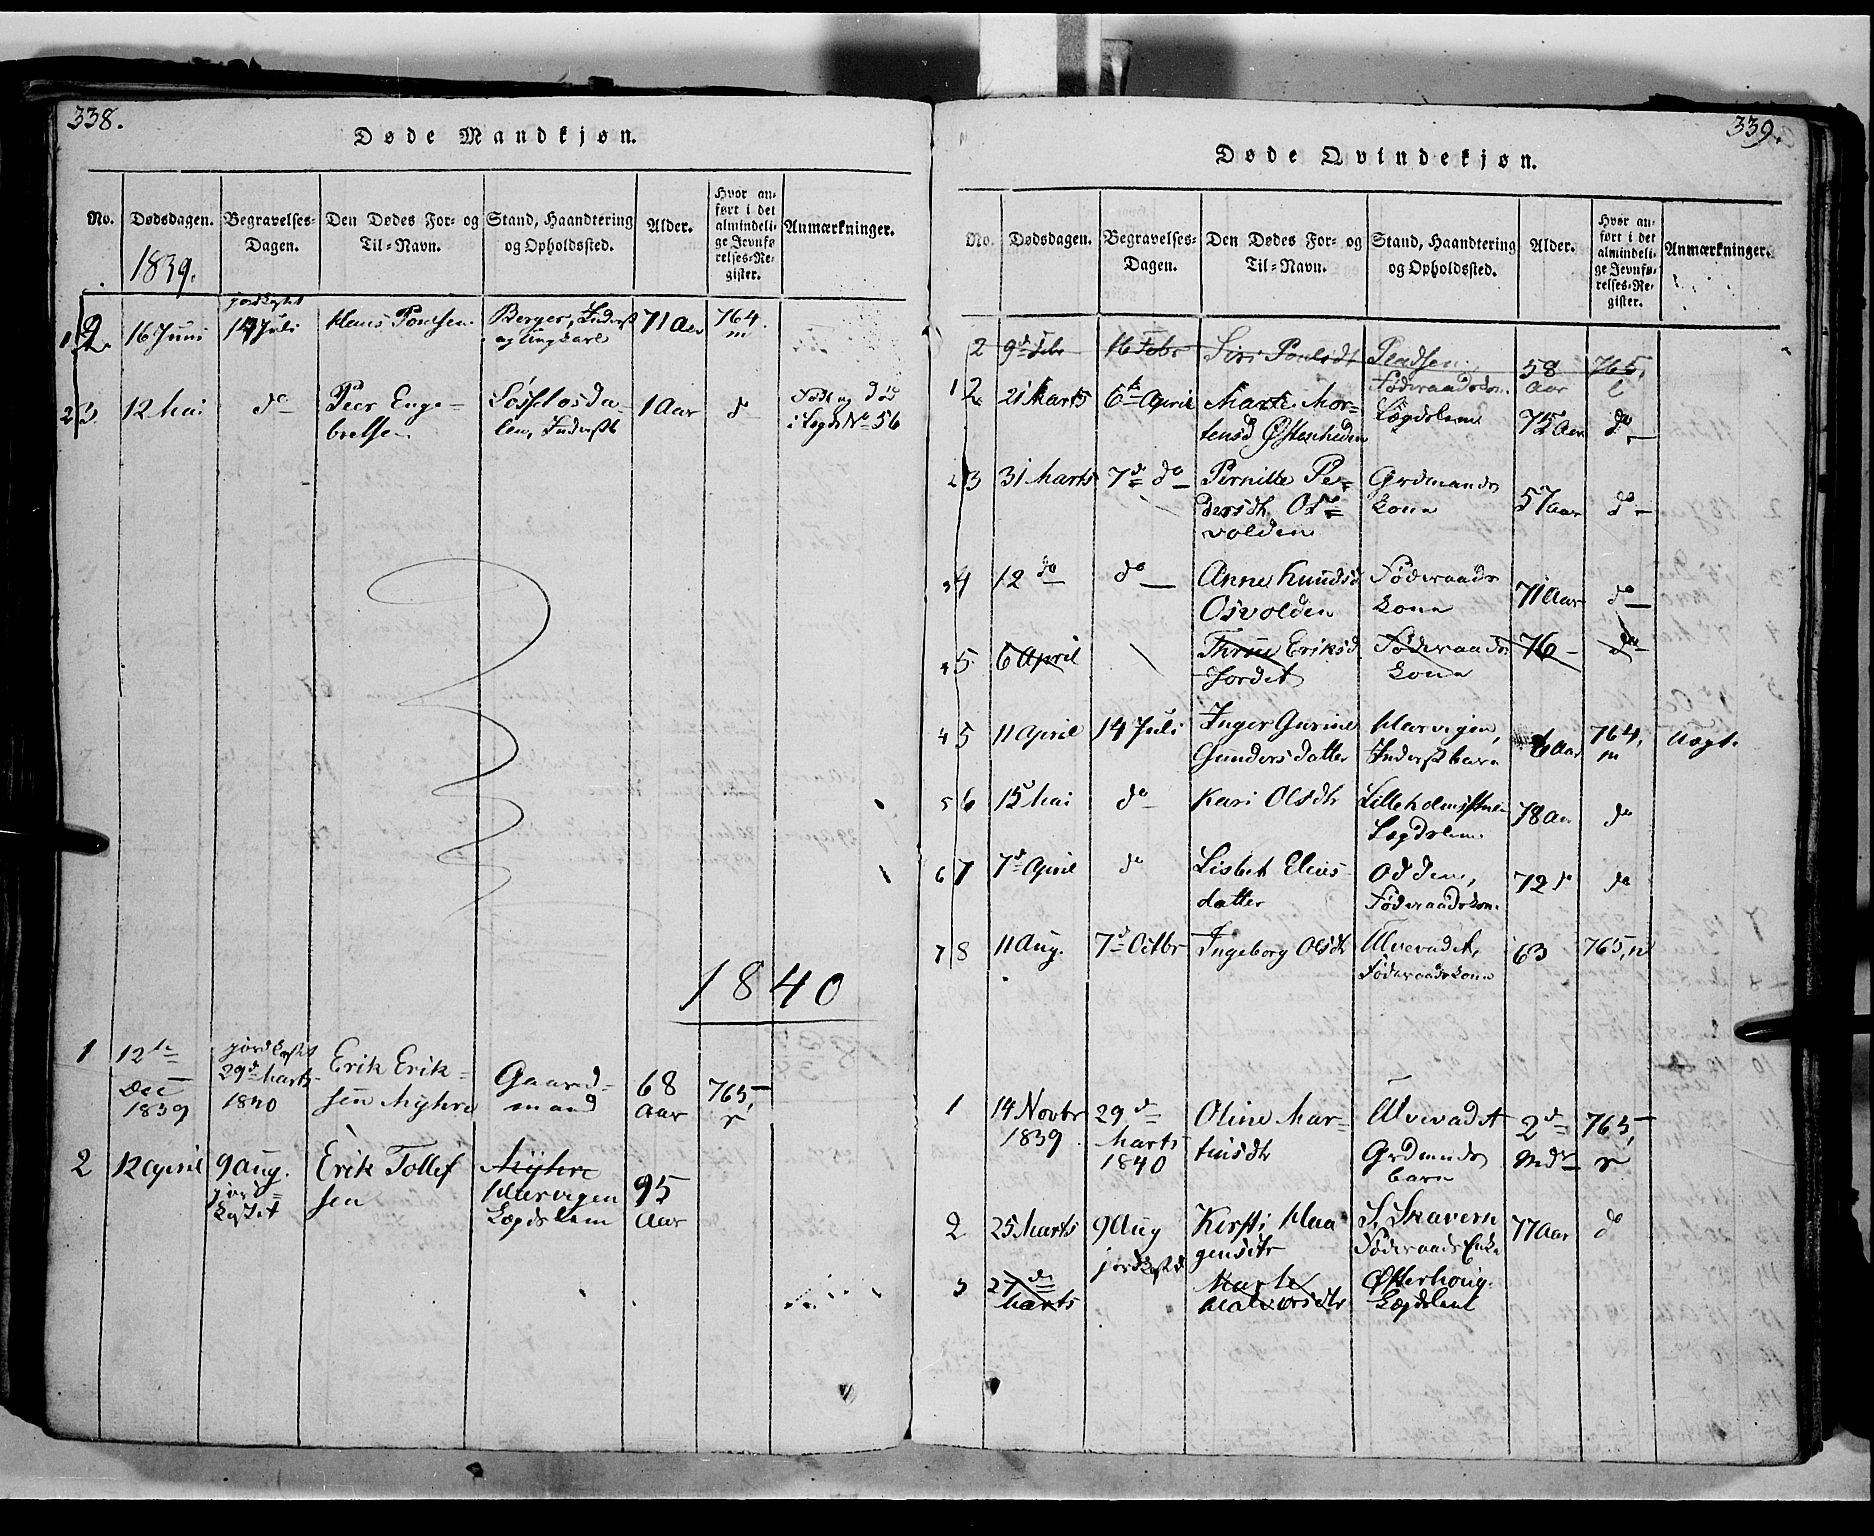 338.
Døde Mandkjøn.
No.
Dødsdagen.
Begravelses-
Dagen.
Den Dødes For- og
Til-Navn.
Stand, Haandtering
og Opholdssted.
Alder.
Hvor an-
ført i det
almindeli-
ge Jevnfø
relses-Re-
gister.
Anmærkninger.
1839.
1 2 16 Juni
jordkastet
14 Juli
Hans Poulsen
Berger, Inderst
71 Aar
764.
m
2 3 12 Mai
do
Peer Enge-
bretsen
Inderstb
1 Aar
d
Født og Død
i Logd No 56
1840
1
12te
Dec
1839
jordkastet
29d Marts
1840
Erik Erik-
sen Myhre
Gaard-
mand
68
Aar
765,
r
2
12 April
9 Aug.
jord-
kastet
Erik Tollef
sen
Myhre
Harvigen
Lægdslem
95
Aar
339.
Døde Qvindekjøn.
No.
Dødsdagen.
Begravelses-
Dagen.
Den Dødes For- og
Til-Navn.
Stand, Haandtering
og Opholdssted.
Alder.
Hvor an-
ført i det
almindeli-
ge Jevnfø-
relses-Re-
gister.
Anmærkninger.
2 9d Febr 16 Febr Siri Poulsdt Pladsen
Føderaadskon
58
Aar
765,
l
1 2 21 Marts 6te April Marte Mor-
tensd Østenheden
Lægdslem
75 Aar
do
2 3 31 Marts 7d do Pernille Pe-
dersdtr Os-
volden
Grdmands
kone
57 Aar
do
3 4 12 do do Anne Knudsd
Osvolden
Føderaads
kone
71 Aar
do
4 5 6 April
Eriksd
Jordet
Føderaads
kone
76
do
4 5 11 April 14 Juli Inger Gurine
Gundersdatter
Harvigen,
Inderst barn
6 Aar
764,
m
5 6 15 Mai do Kari Olsdtr
Lægdslem
78 Aa
do
6 7 7d April do Lisbet Elius-
datter
Odden,
Føderaadskone
72 d
do
7 8 11 Aug. 7d Octbr Ingeborg Olsdtr
Ulvevadet,
Føderaadskone
63
765, n
1
14 Novbr
1839
29d
Marts
1840
Oline Mar-
tinsdtr
Ulvevadet
Grdmnds
barn
2d
Mdr
765,
r
2 25 Marts 9 Aug
jordkastet
Kersti Haa
gensdtr
S, Skavern
Føderaads Enke
77 Aar
do
3
27d
Marts
Marte
Halvorsdtr
Østerhoug.
Lægdslem